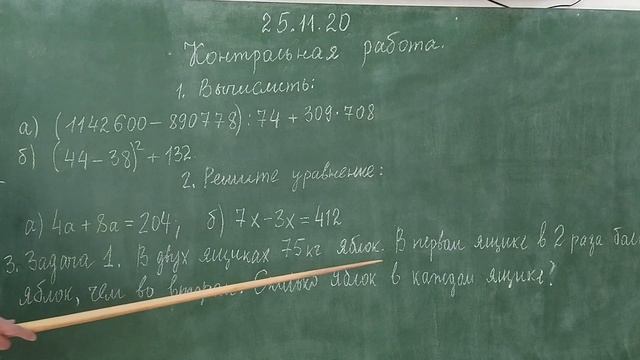 25.11.20
Контрольная работа.
1. Вычислить:
а) (1142600-890778):74+309·708
б) (44-38)²+132.
2. Решите уравнение:
а) 4а+8а=204; б) 7х-3х=412
3. Задача 1. В двух ящиках 75кг яблок. В первом ящике в 2 раза бол
яблок, чем во втором. Сколько яблок в каждом ящике?